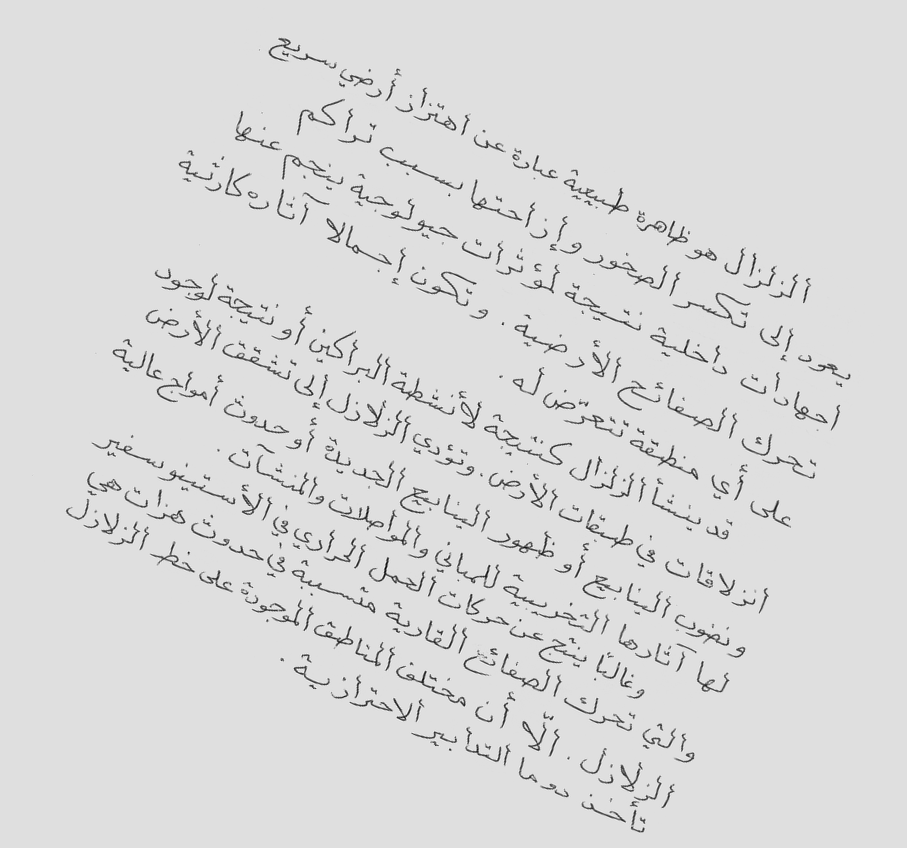 الزلزال هو ظاهرة طبيعية عبارة عن اهتزاز أرضي سريع
يعود إلى تكسر الصخور وإزاحتها بسبب تراكم
اجهادات داخلية نتيجة لمؤثرات جيولوجية ينجم عنها
تحرك الصفائح الأرضية. وتكون إجمالا آثاره كارثية
على أي منطقة تتعرّض له.
قد ينشأ الزلزال كنتيجة لأنشطة البراكين أو نتيجة لوجود
انزلاقات في طبقات الأرض. وتؤدي الزلازل إلى تشقق الأرض
ونضوب الينابيع أو ظهور الينابيع الجديدة أو حدوث أمواج عالية
لها آثارها التخريبية للمباني والمواصلات والمنشآت.
وغالبًا ينتج عن حركات الحمل الحراري في الأستينوسفير
والتي تحرك الصفائح القارية متسببة في حدوث هزات هي
الزلازل. ألّا أن مختلف المناطق الموجودة على خط الزلازل
تأخذ دوما التدابير الاحترازية.